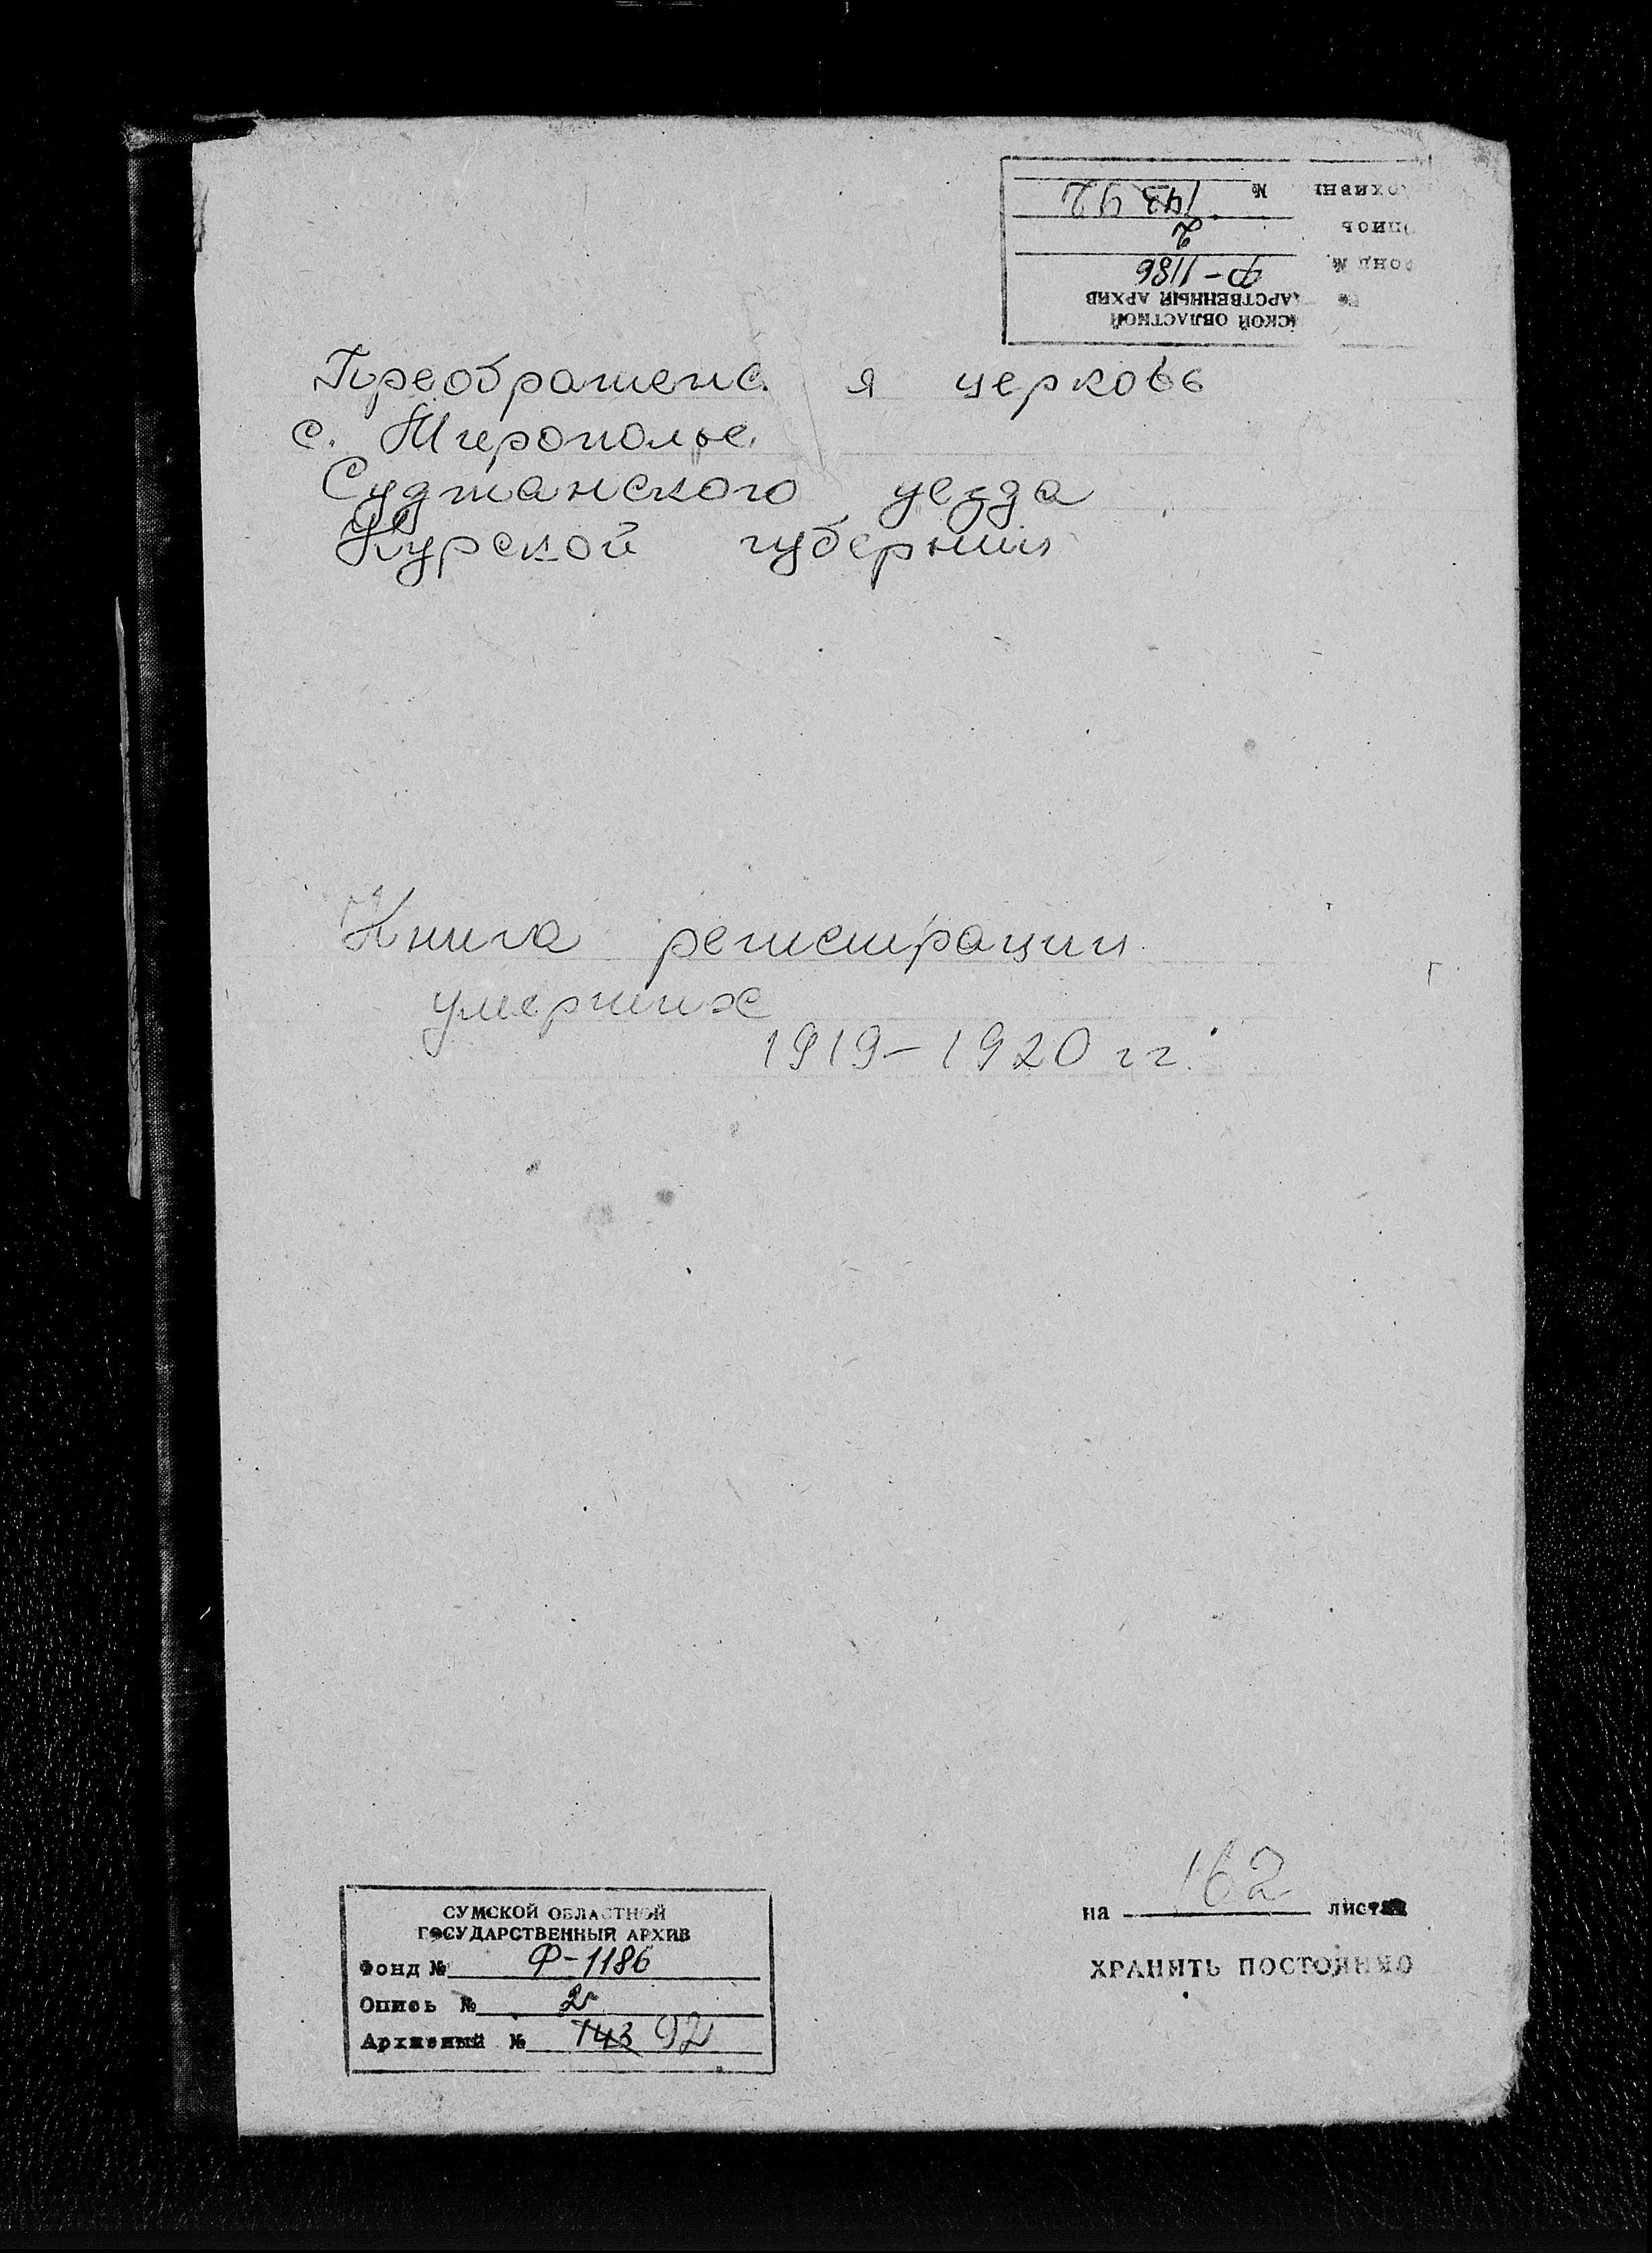 СКОЙ ОБЛАСТНОЙ
ДАРСТВЕННЫЙ АРХИВ
ОНД № Ф-1186
ОПИСЬ 2
№ 143 92
Преображенс я церковь
с. Мирополье.
Суджанского уезда
Курской губернии
Книга регистрации
умерших
1919-1920 гг.
на 162 листах
ХРАНИТЬ ПОСТОЯННО
СУМСКОЙ ОБЛАСТНОЙ
ГОСУДАРСТВЕННЫЙ АРХИВ
Фонд № Ф-1186
Опись № 2
Архивный № 143 92